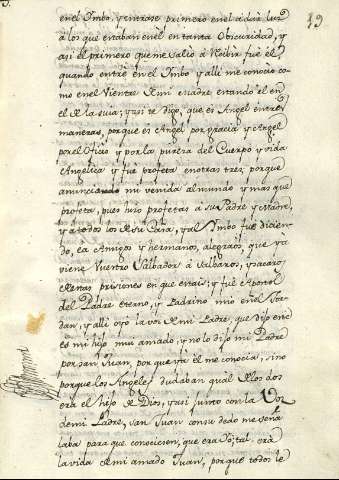 19
en el Imbo, y entrase primero en el a dar luz
a los que estaban en él en tanta Obscuridad, y
asi el primero que me salio à Recivir fue el
quando entré en el Imbo y alli me conocio co-
mo en el Vientre de mi madre estando él en
el de la suia; y asi te digo, que es Angel entres
maneras, porque es Angel por gracia y Angel
por el Oficio y por la pureza del Cuerpo y vida
Angelica y fue profeta en otras tres; porque
anuncio mi venida al mundo y mas que
profeta, pues hizo profetas a su Padre y Madre,
y a todos los de su Casa, y al Imbo fue dicien-
do, ea Amigos y hermanos, alegraos, que ya
viene Vuestro Salbador à Salbaros, y sacaros
de estas prisiones en que estais; y fué Apostol
del Padre eterno, y Padrino mio en el Jor-
dan, y alli oyo la voz de mi Padre, que dijo este
es mi hijo mui amado, y no lo dijo mi Padre
por san Juan, porque ya él me conocia, sino
porque los Angeles dudaban qual de los dos
era el hijo de Dios, y asi junto con la Voz
de mi Padre, san Juan con su dedo me seña-
laba para que conociesen, que era Yo; tal era
la vida de mi amado Juan, porque todos le